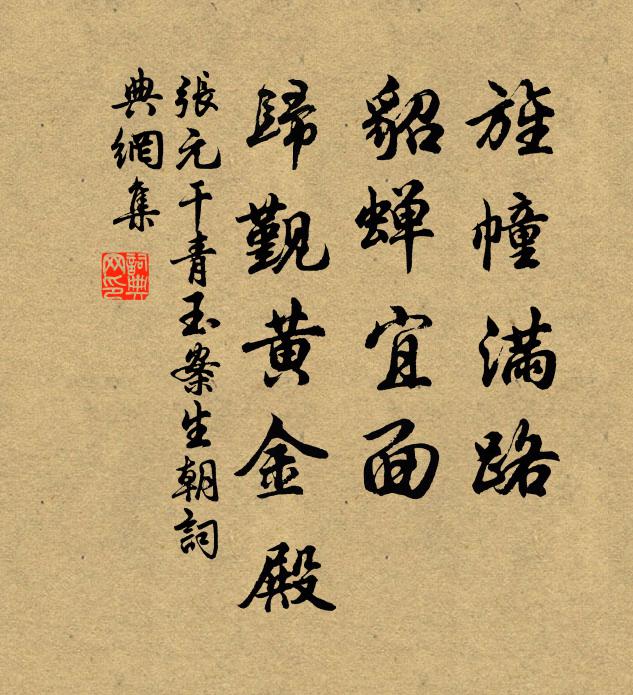 旌幢滿路
貂蟬宜面
歸覲黃金殿
張元干青玉案生朝詞
典網集
詞典網印